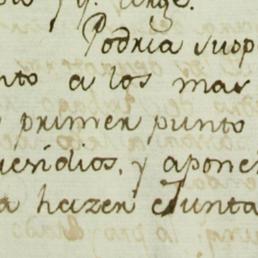 Podria suop
nto a los mas
primer punto
ueridios, y aponer
a hazer Junta